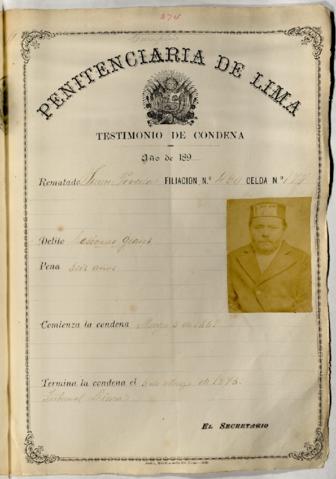 274
PENITENCIARIA DE LIMA
TESTIMONIO DE CONDENA
Año de 189
Rematado Juan FILIACION N.º 460 CELDA N.º
Delito Lesiones graves
Pena seis años
Comienza la condena Mayo 5 de
Termina la condena el 5 de Mayo de 1895
Tribunal
EL SECRETARIO